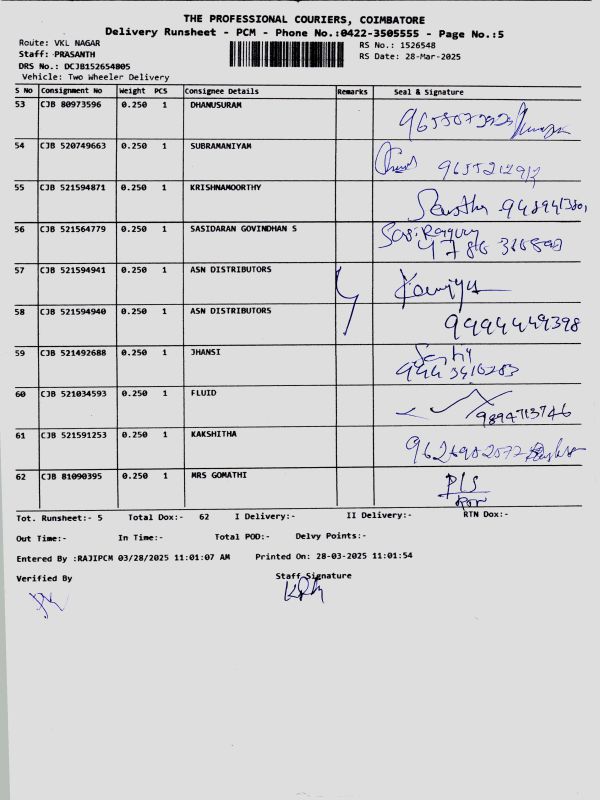 THE PROFESSIONAL COURIERS, COIMBATORE
Delivery Runsheet - PCM - Phone No.:0422-3505555 - Page No.:5
Route: VKL NAGAR
RS No.: 1526548
Staff: PRASANTH
RS Date: 28-Mar-2025
DRS No.: DCJB152654805
Vehicle: Two Wheeler Delivery
S No Consignment No Weight PCS Consignee Details Remarks Seal & Signature
53 CJB 80973596 0.250 1 DHANUSURAM
54 CJB 520749663 0.250 1 SUBRAMANIYAM
55 CJB 521594871 0.250 1 KRISHNAMOORTHY
56 CJB 521564779 0.250 1 SASIDARAN GOVINDHAN S
57 CJB 521594941 0.250 1 ASN DISTRIBUTORS
58 CJB 521594940 0.250 1 ASN DISTRIBUTORS 9994449398
59 CJB 521492688 0.250 1 JHANSI
60 CJB 521034593 0.250 1 FLUID 9894713746
61 CJB 521591253 0.250 1 KAKSHITHA
62 CJB 81090395 0.250 1 MRS GOMATHI P/S
Tot. Runsheet:- 5 Total Dox:- 62 I Delivery:- II Delivery:- RTN Dox:-
Out Time:- In Time:- Total POD:- Delvy Points:-
Entered By :RAJIPCM 03/28/2025 11:01:07 AM Printed On: 28-03-2025 11:01:54
Verified By Staff Signature